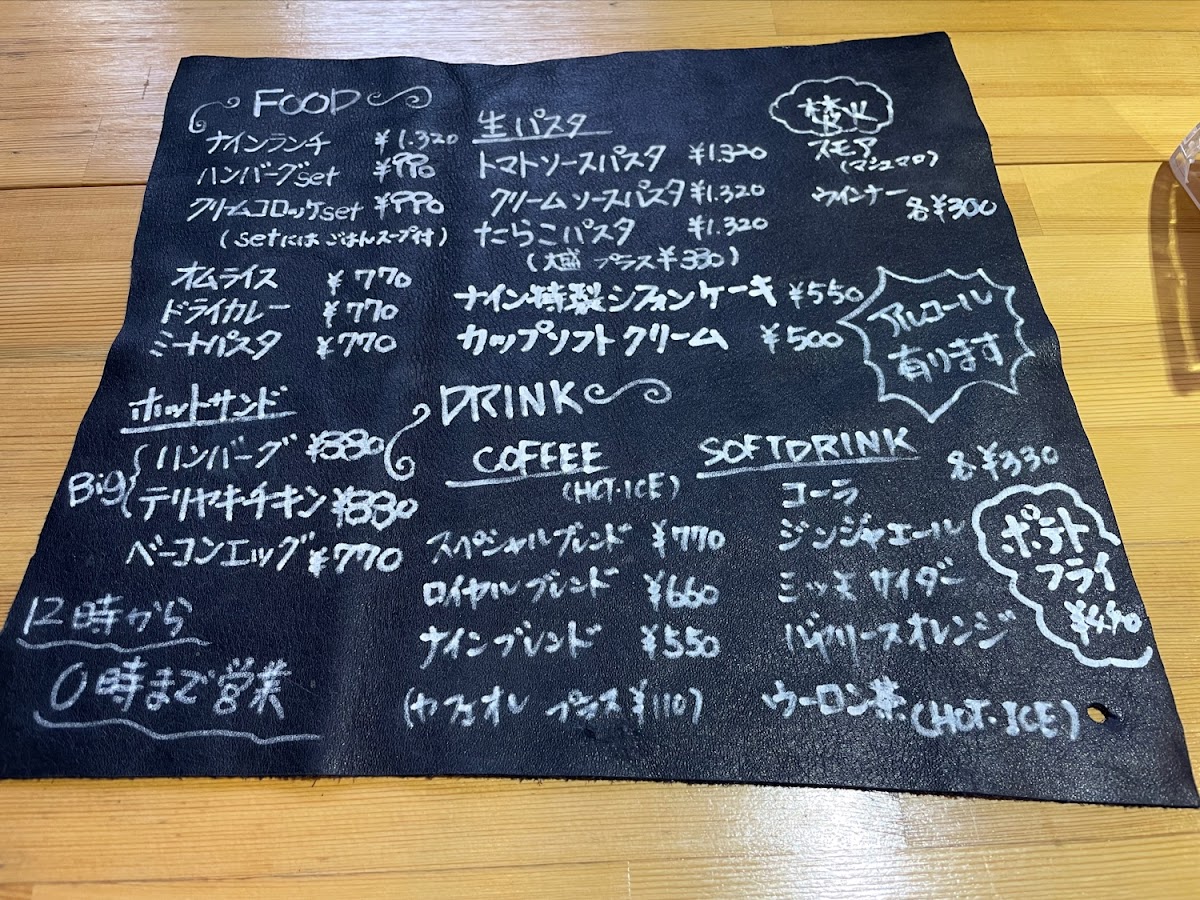 FOOD
ナインランチ ¥1.320
ハンバーグset ¥990
クリームコロッケset ¥990
(setにはごはんスープ付)
オムライス ¥770
ドライカレー ¥770
ミートパスタ ¥770
ホットサンド
Big
ハンバーグ ¥880
テリヤキチキン ¥880
ベーコンエッグ ¥770
12時から
0時まで営業
生パスタ
トマトソースパスタ ¥1.320
クリームソースパスタ ¥1.320
たらこパスタ ¥1.320
(大盛 プラス¥330)
ナイン特製シフォンケーキ ¥550
カップソフトクリーム ¥500
焚火
スモア
(マシュマロ)
ウインナー 各¥300
アルコール
有ります
DRINK
COFFEE
(HOT・ICE)
スペシャルブレンド ¥770
ロイヤルブレンド ¥660
ナインブレンド ¥550
(カフェオレ プラス¥110)
SOFTDRINK 各¥330
コーラ
ジンジャエール
ミッキサイダー
バヤリースオレンジ
ウーロン茶(HOT・ICE)
ポテト
フライ
¥440